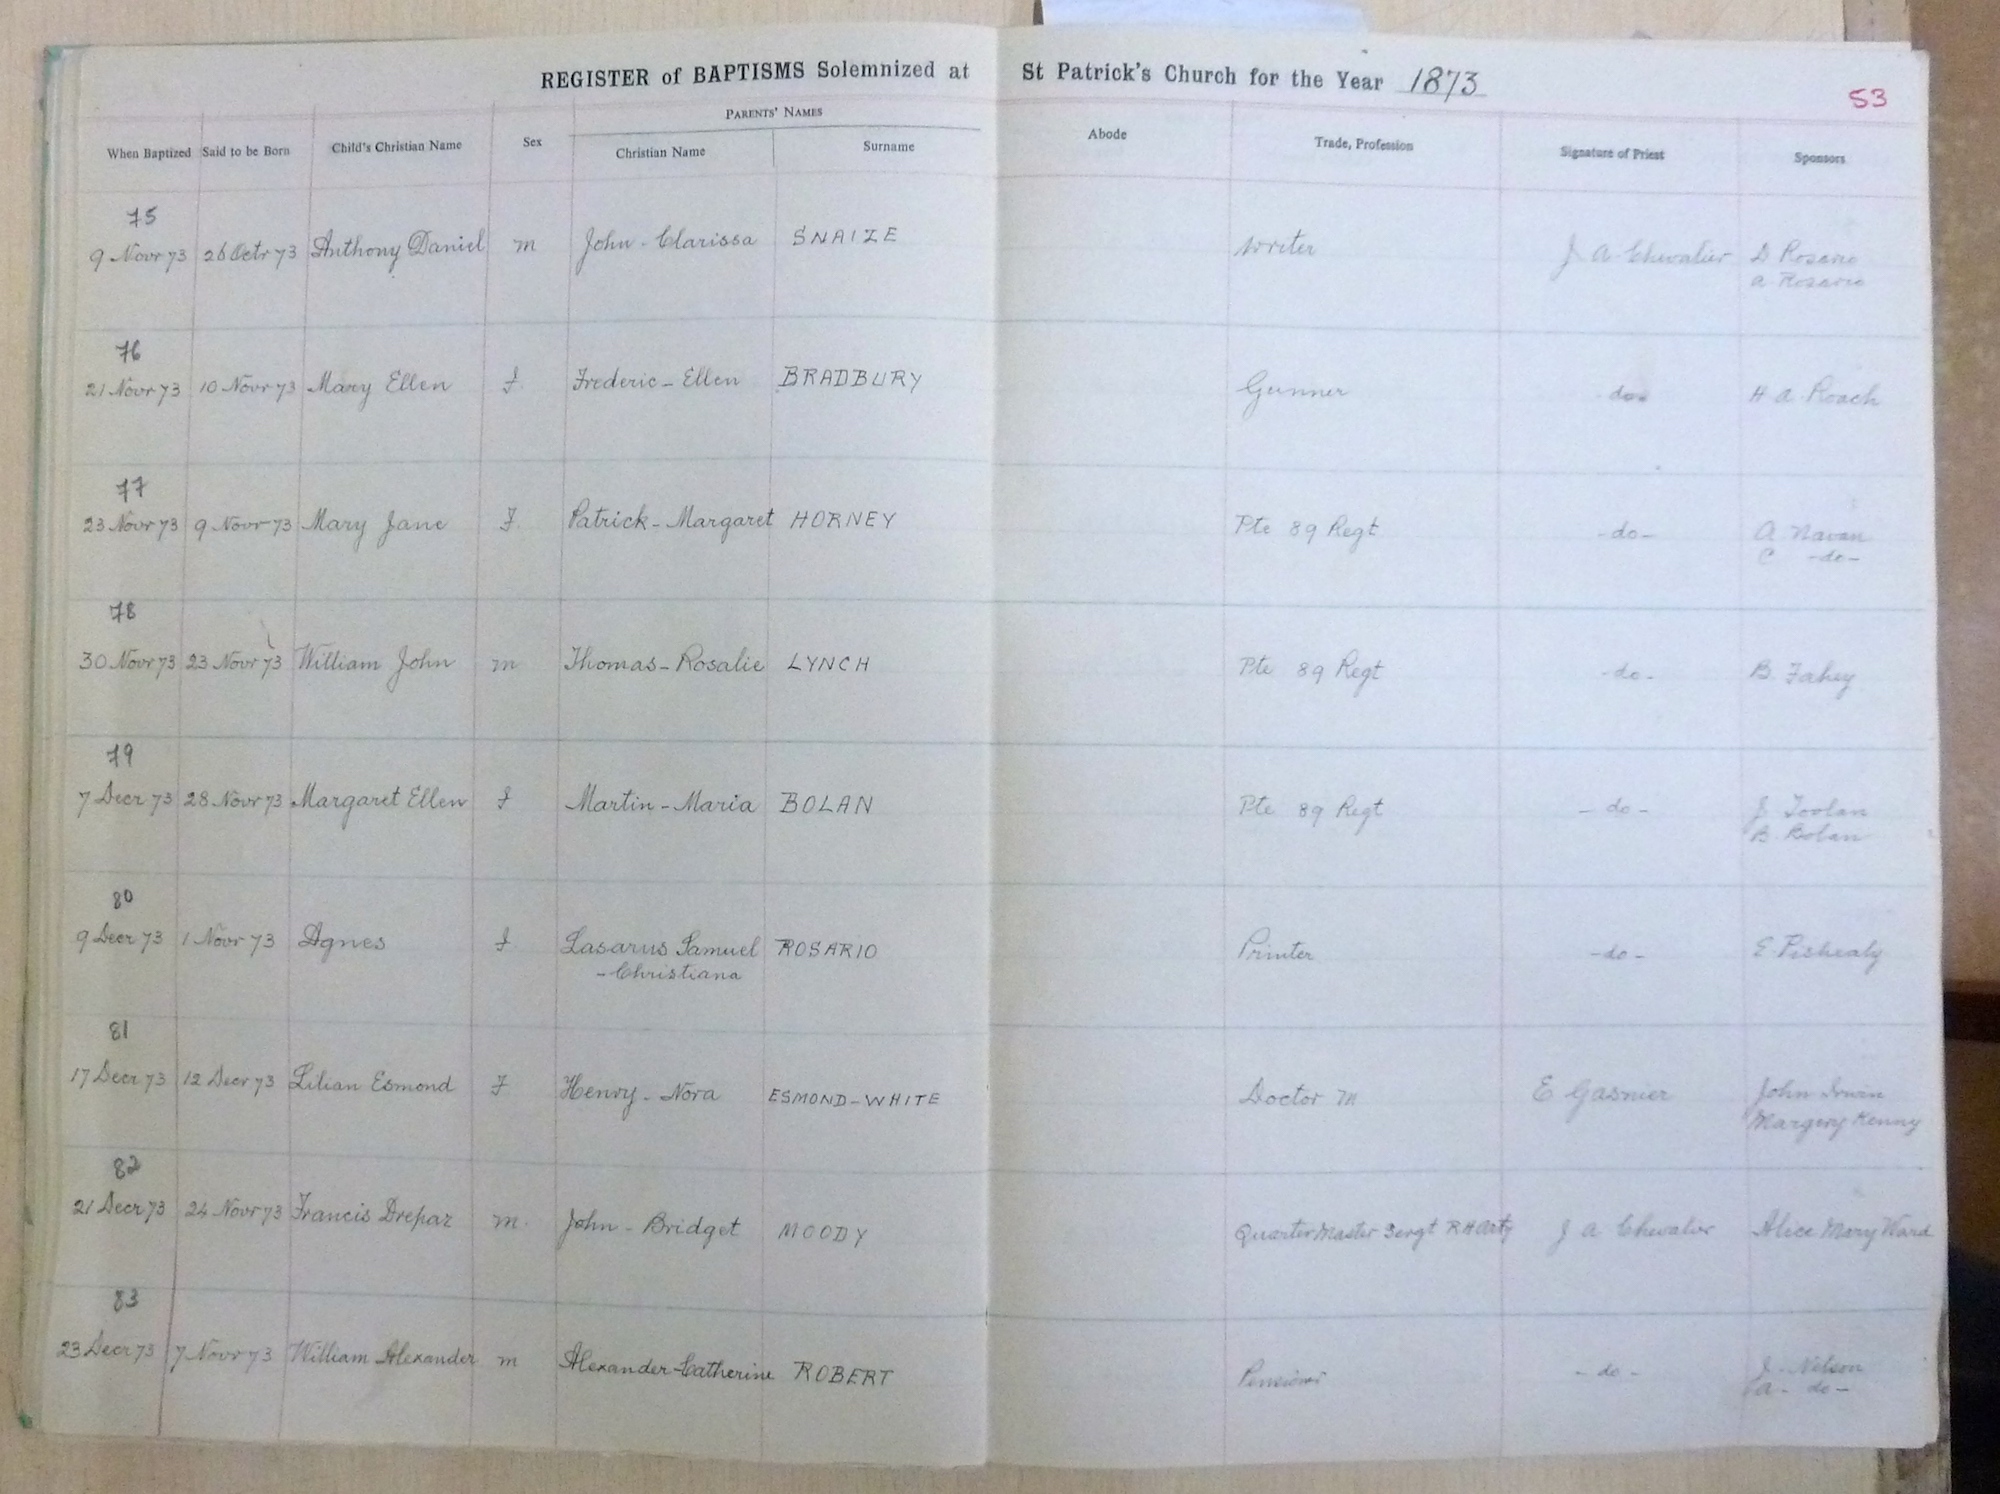 REGISTER of BAPTISMS Solemnized at St Patrick's Church for the Year 1873
53
When Baptized Said to be Born Child's Christian Name Sex PARENTS' NAMES Christian Name Surname Abode Trade, Profession Signature of Priest Sponsors
75
9 Novr 73 26 Octr 73 Anthony Daniel m John - Clarissa SNAIZE Writer J A Chevalier D Rosario
A Rosario
76
21 Novr 73 10 Novr 73 Mary Ellen F Frederic - Ellen BRADBURY Gunner -do- H A Roach
77
23 Novr 73 9 Novr 73 Mary Jane F Patrick - Margaret HORNEY Pte 89 Regt -do- A Navan
C -do-
78
30 Novr 73 23 Novr 73 William John m Thomas - Rosalie LYNCH Pte 89 Regt -do- B Fahey
79
7 Decr 73 28 Novr 73 Margaret Ellen F Martin - Maria BOLAN Pte 89 Regt -do- J Toolan
B Bolan
80
9 Decr 73 1 Novr 73 Agnes F Lasarus Samuel ROSARIO Printer -do- E
- Christiana
81
17 Decr 73 12 Decr 73 Lilian Esmond F Henry - Nora ESMOND-WHITE Doctor M E Gasnier John Irwin
Margery Kenny
82
21 Decr 73 24 Novr 73 Francis Drepaz m John - Bridget MOODY QuarterMaster Sergt RHArty J A Chevalier Alice Mary Ward
83
23 Decr 73 7 Novr 73 William Alexander m Alexander-Catherine ROBERT -do- J - Nelson
A - do -